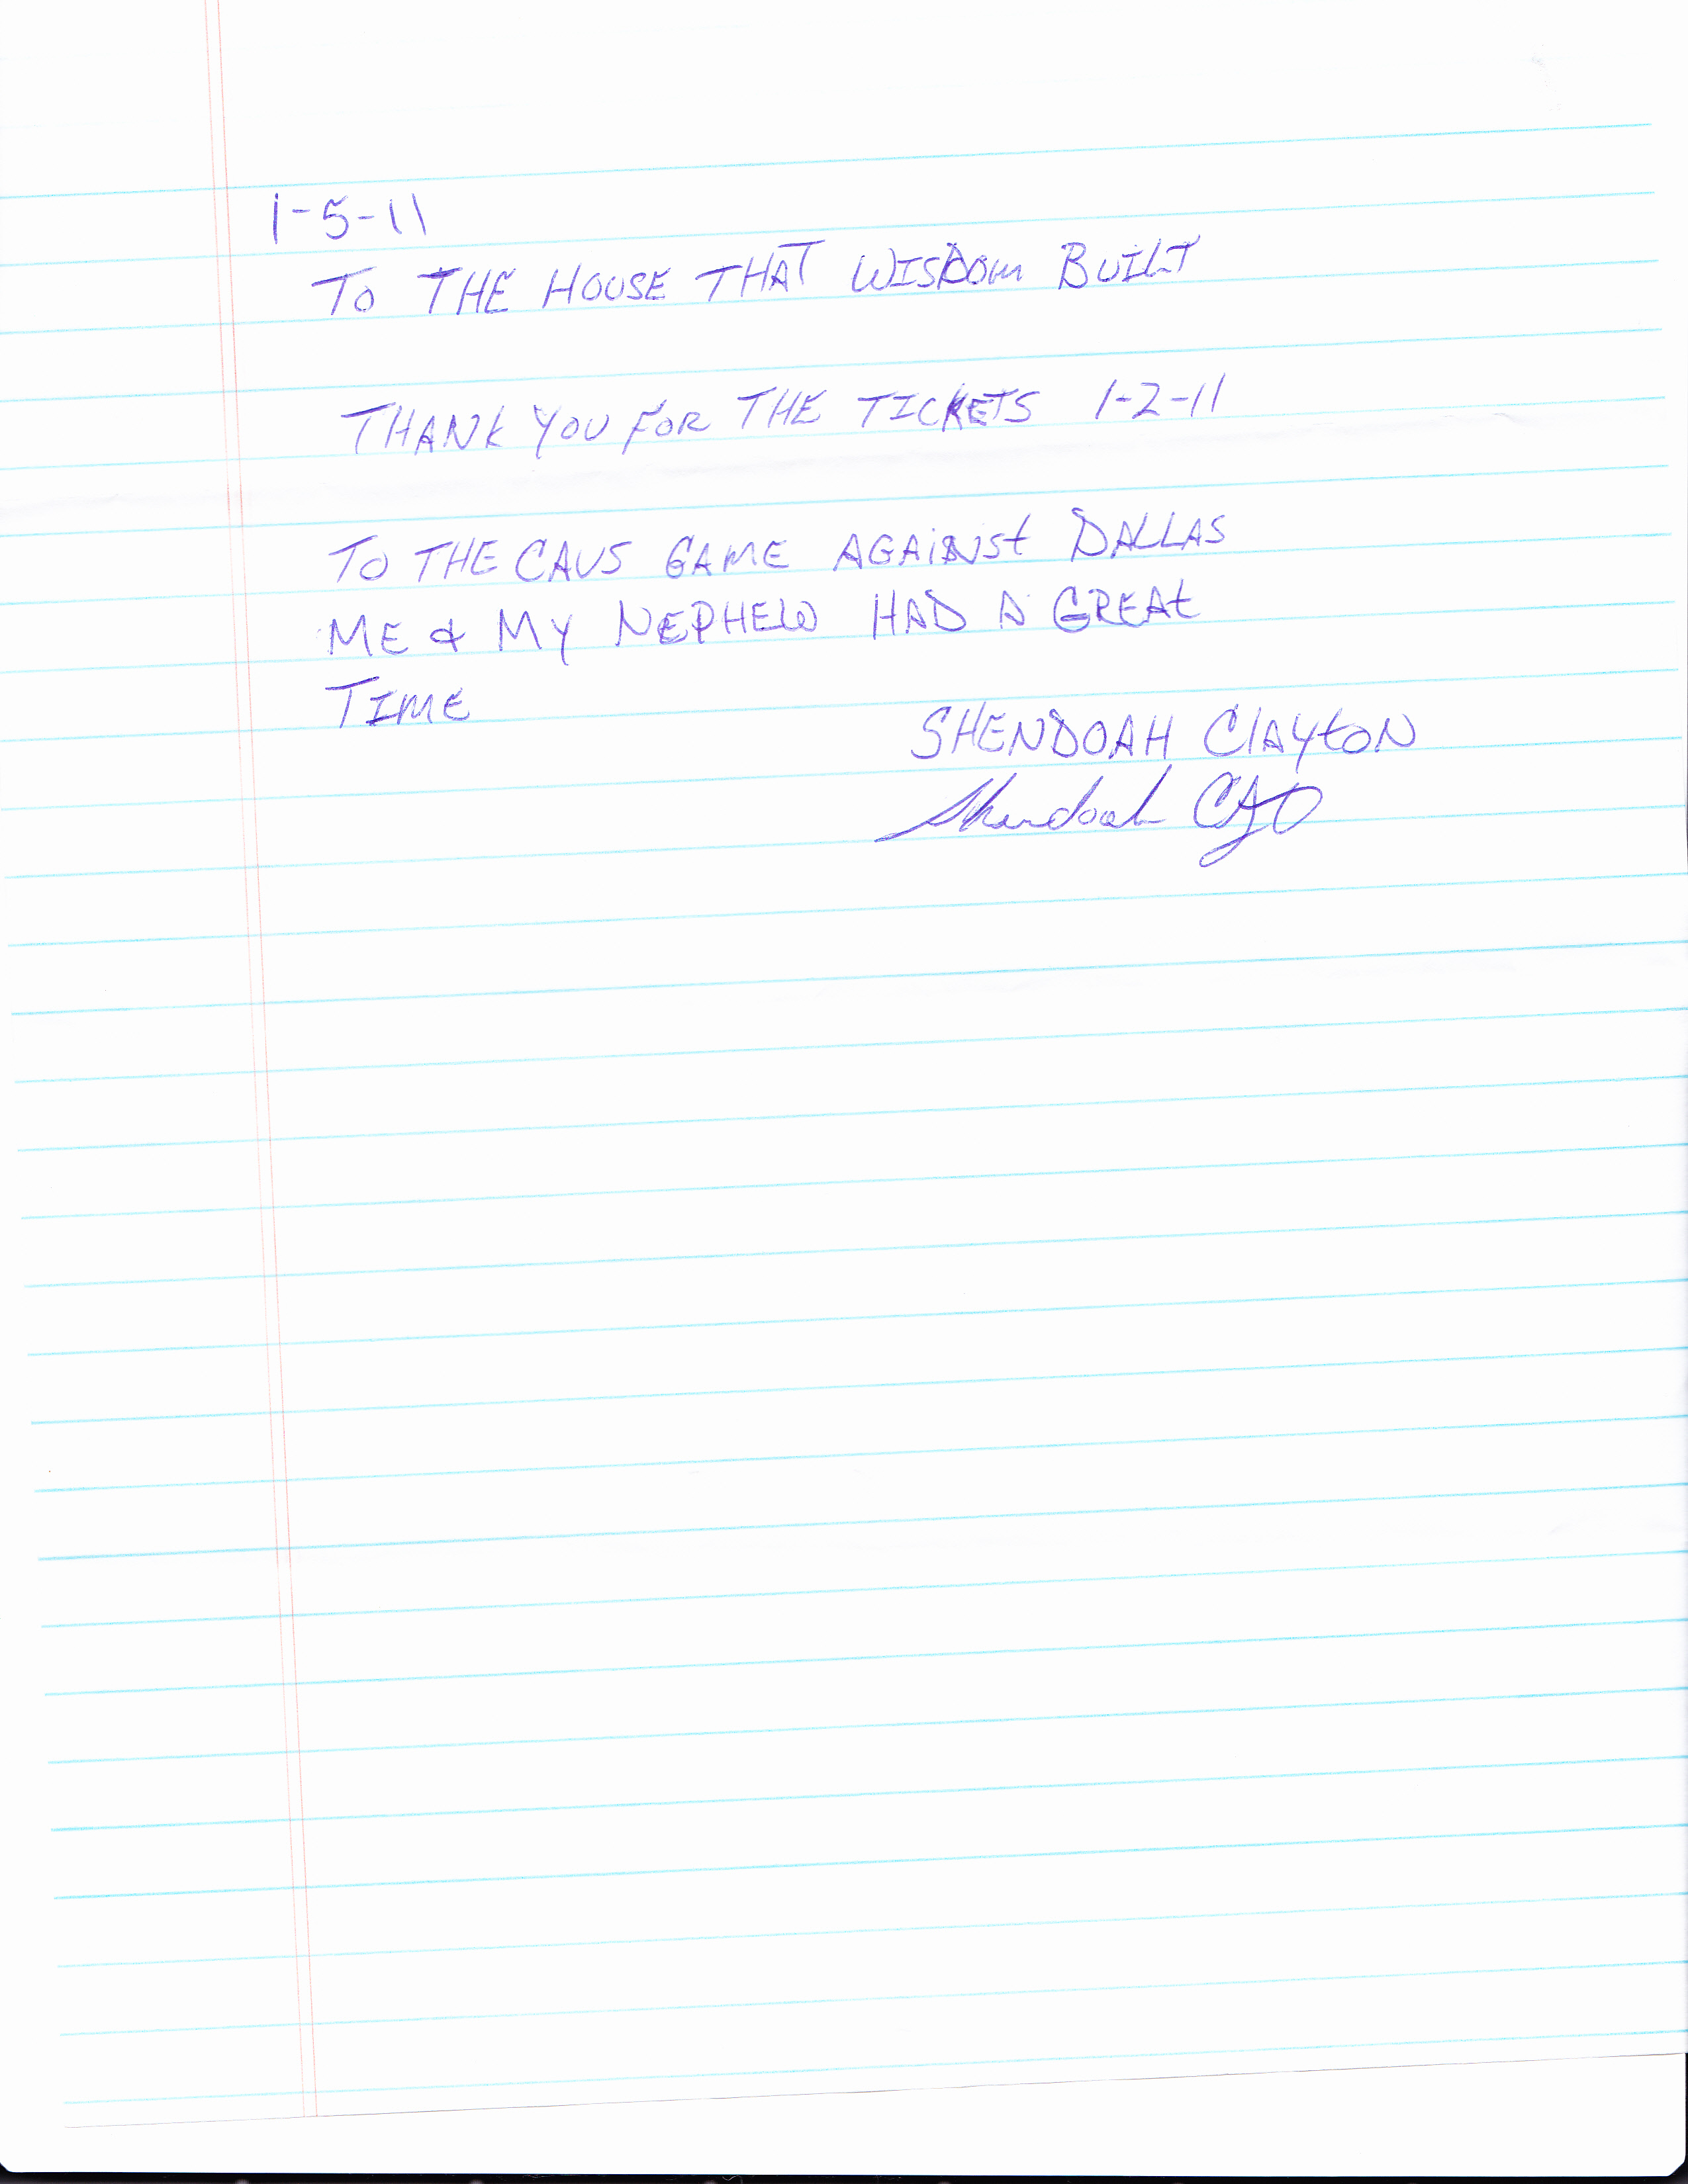 1-5-11
TO THE HOUSE THAT WISDOM BUILT
THANK YOU FOR THE TICKETS 1-2-11
TO THE CAVS GAME AGAiNSt DALLAS
ME & MY NEPHEW HAD A GREAt
TIME
SHENDOAH ClAYtON
Shendoah